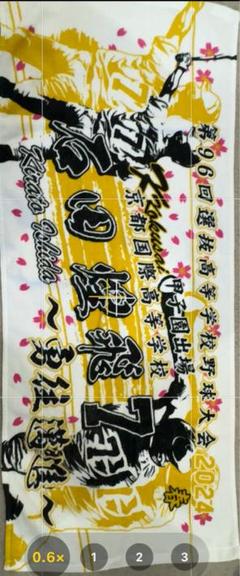 第96回選抜高等学校野球大会
2024
春
甲子園出場
京都国際高等学校
Kokusai
石田煌飛 7
Kirato Ishida
～勇往邁進～
0.6× 1 2 3